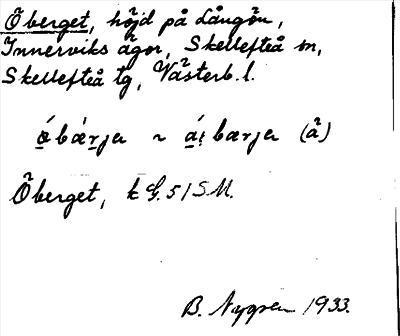 Öberget, höjd på Långön,
Innerviks ägor, Skellefteå sn,
Skellefteå tg, Västerb. l.
Öberget, k G. 51 S.M.
B. Nygren 1933.